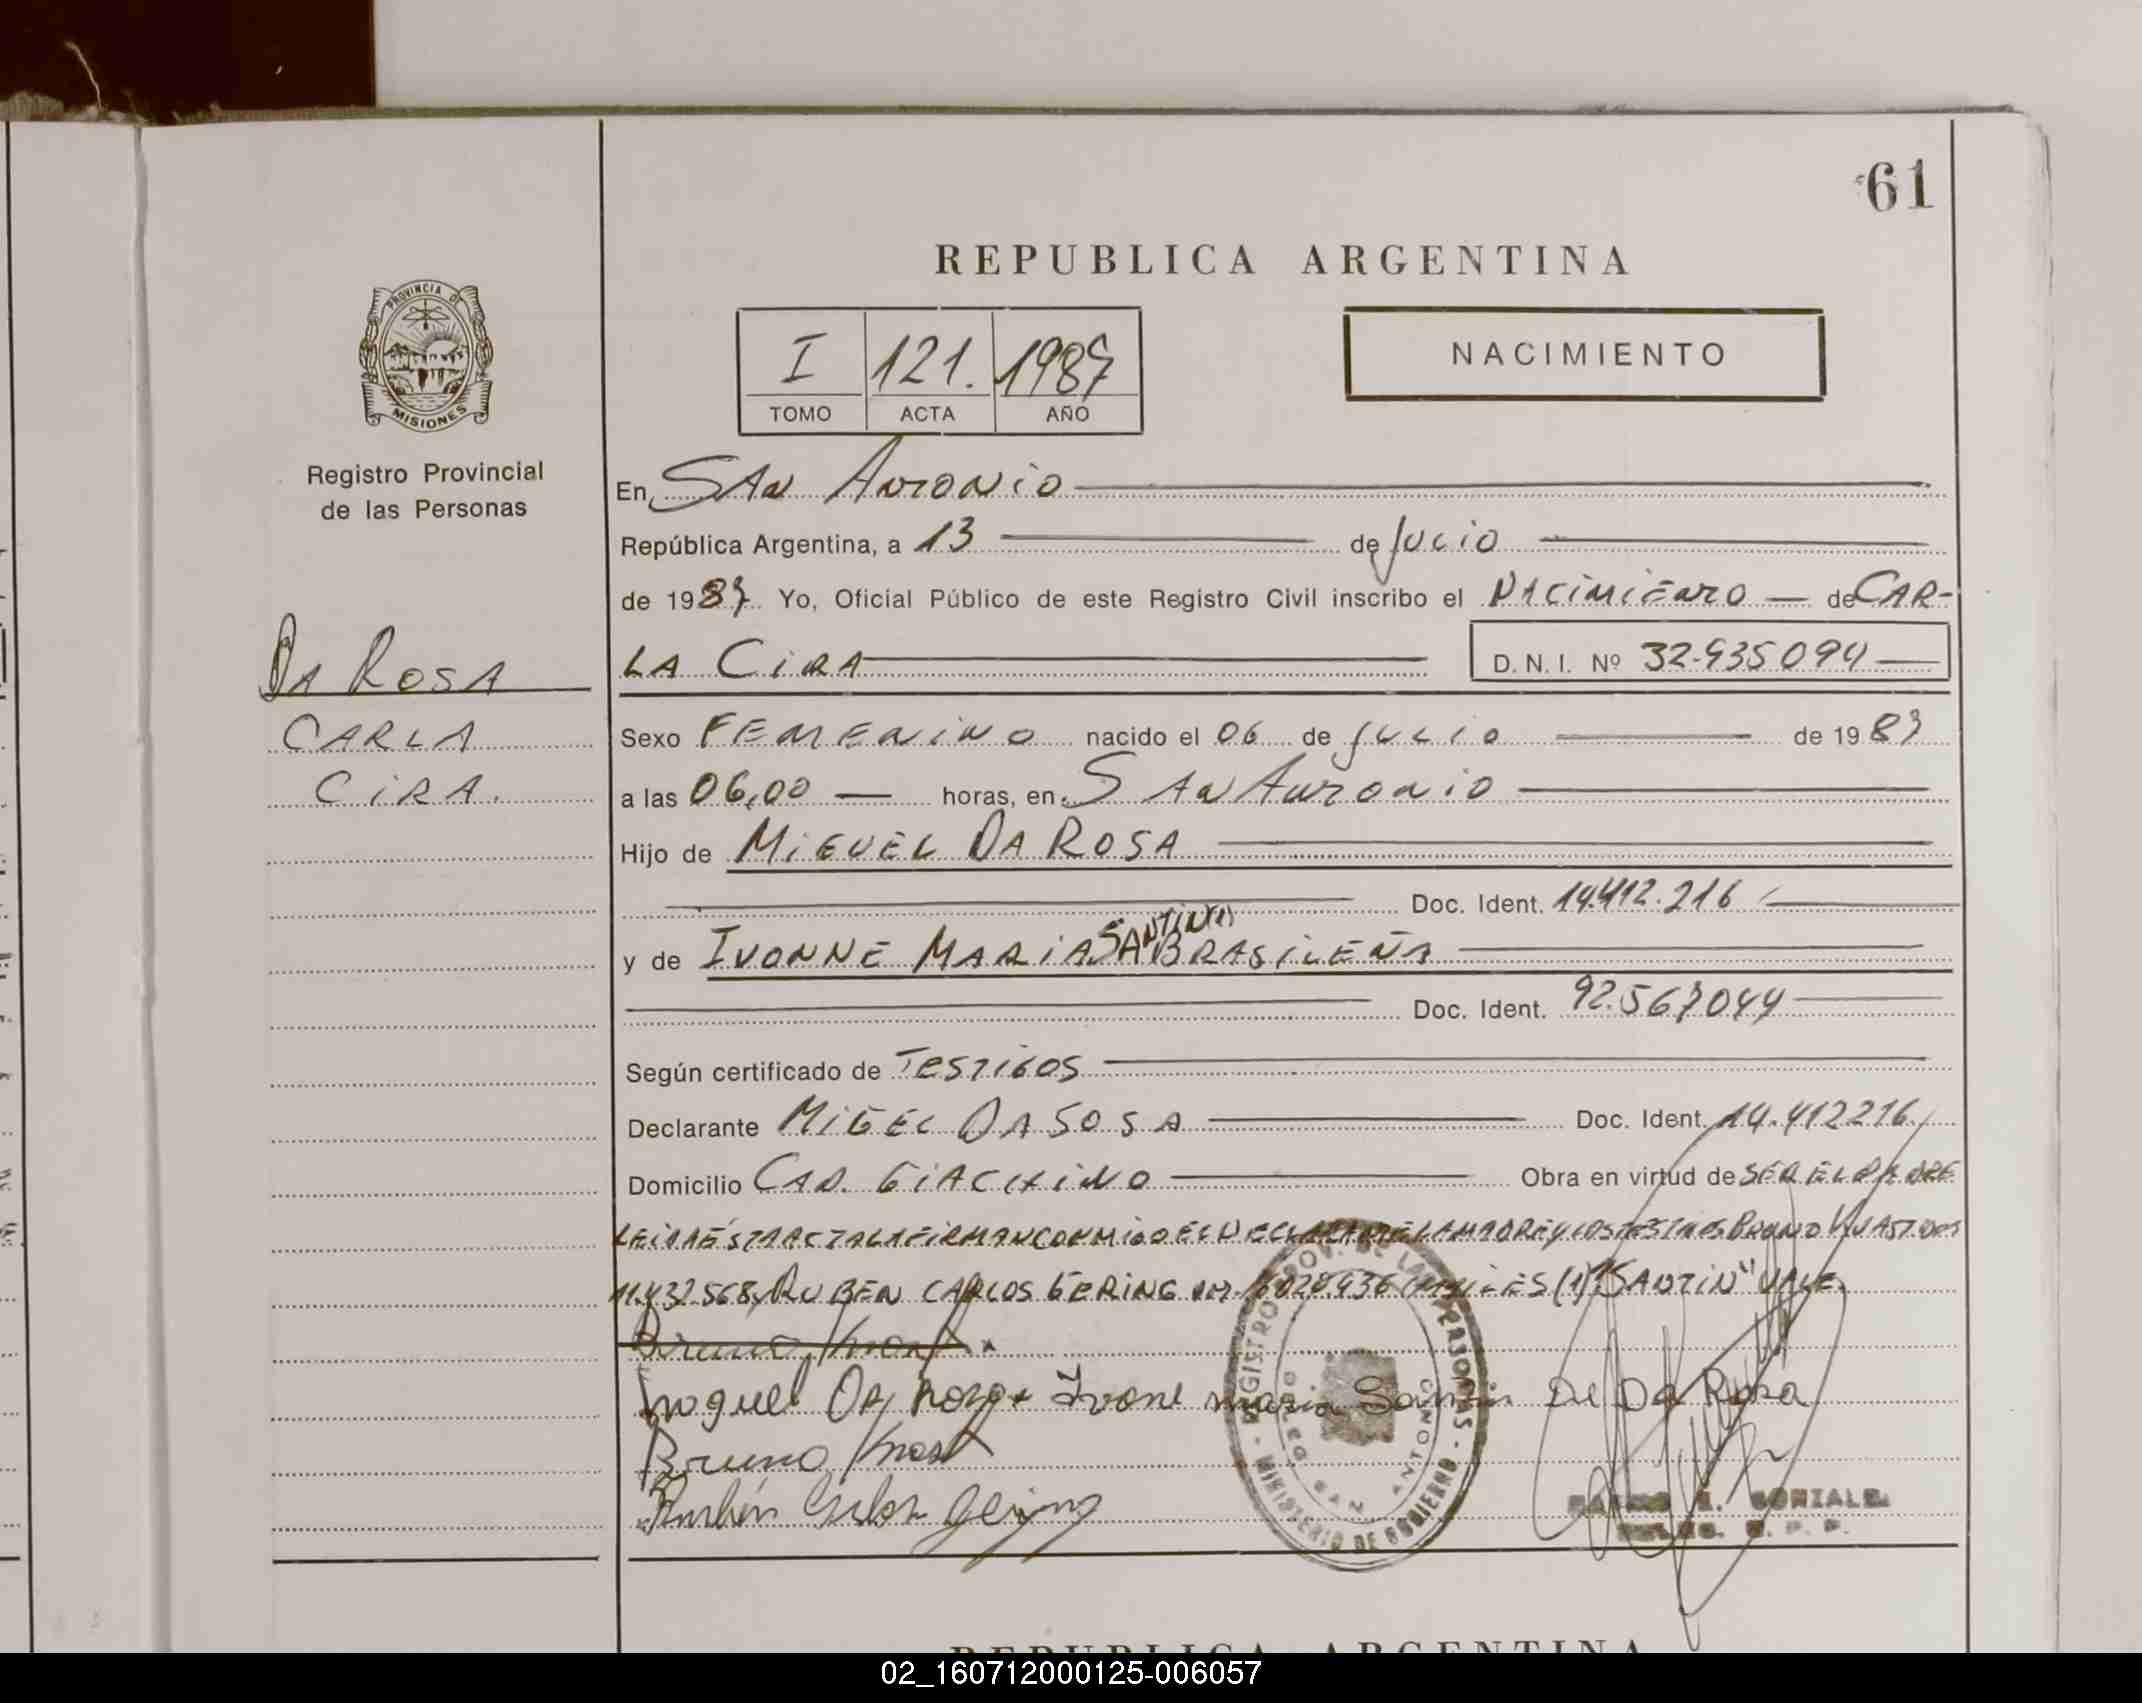 61
REPUBLICA ARGENTINA
PROVINCIA DE
MISIONES
Registro Provincial
de las Personas
I 121. 1987
TOMO ACTA AÑO
NACIMIENTO
En SAN ANTONIO
República Argentina, a 13 de JULIO
de 1987 Yo, Oficial Público de este Registro Civil inscribo el NACIMIENTO de CAR-
LA CIRA D.N.I. Nº 32.935094
DA ROSA
CARLA
CIRA.
Sexo FEMENINO nacido el 06 de JULIO de 1987
a las 06,00 horas, en SAN ANTONIO
Hijo de MIGUEL DA ROSA
Doc. Ident. 14.412.216
y de IVONNE MARIA SANTIN(1) BRASILEÑA
Doc. Ident. 92.567044
Según certificado de TESTIGOS
Declarante MIGEL DA SOSA Doc. Ident. 14.412216
Domicilio CAP. GIACHINO Obra en virtud de SER EL PADRE
LEIDA ÉSTA ACTA LA FIRMAN CONMIGO EL DECLARANTE LA MADRE Y LOS TESTIGOS BRUNO
11.432.568, RUBEN CARLOS GERING (1) "SANTIN" VALE.
Bruno Knast
Miguel Da Rosa Ivone maria Santin De Da Rosa
Bruno Knast
Rubén Carlos Gering
REGISTRO PROV. DE LAS PERSONAS
MINISTERIO DE GOBIERNO
SAN ANTONIO
REPUBLICA ARGENTINA
02_160712000125-006057